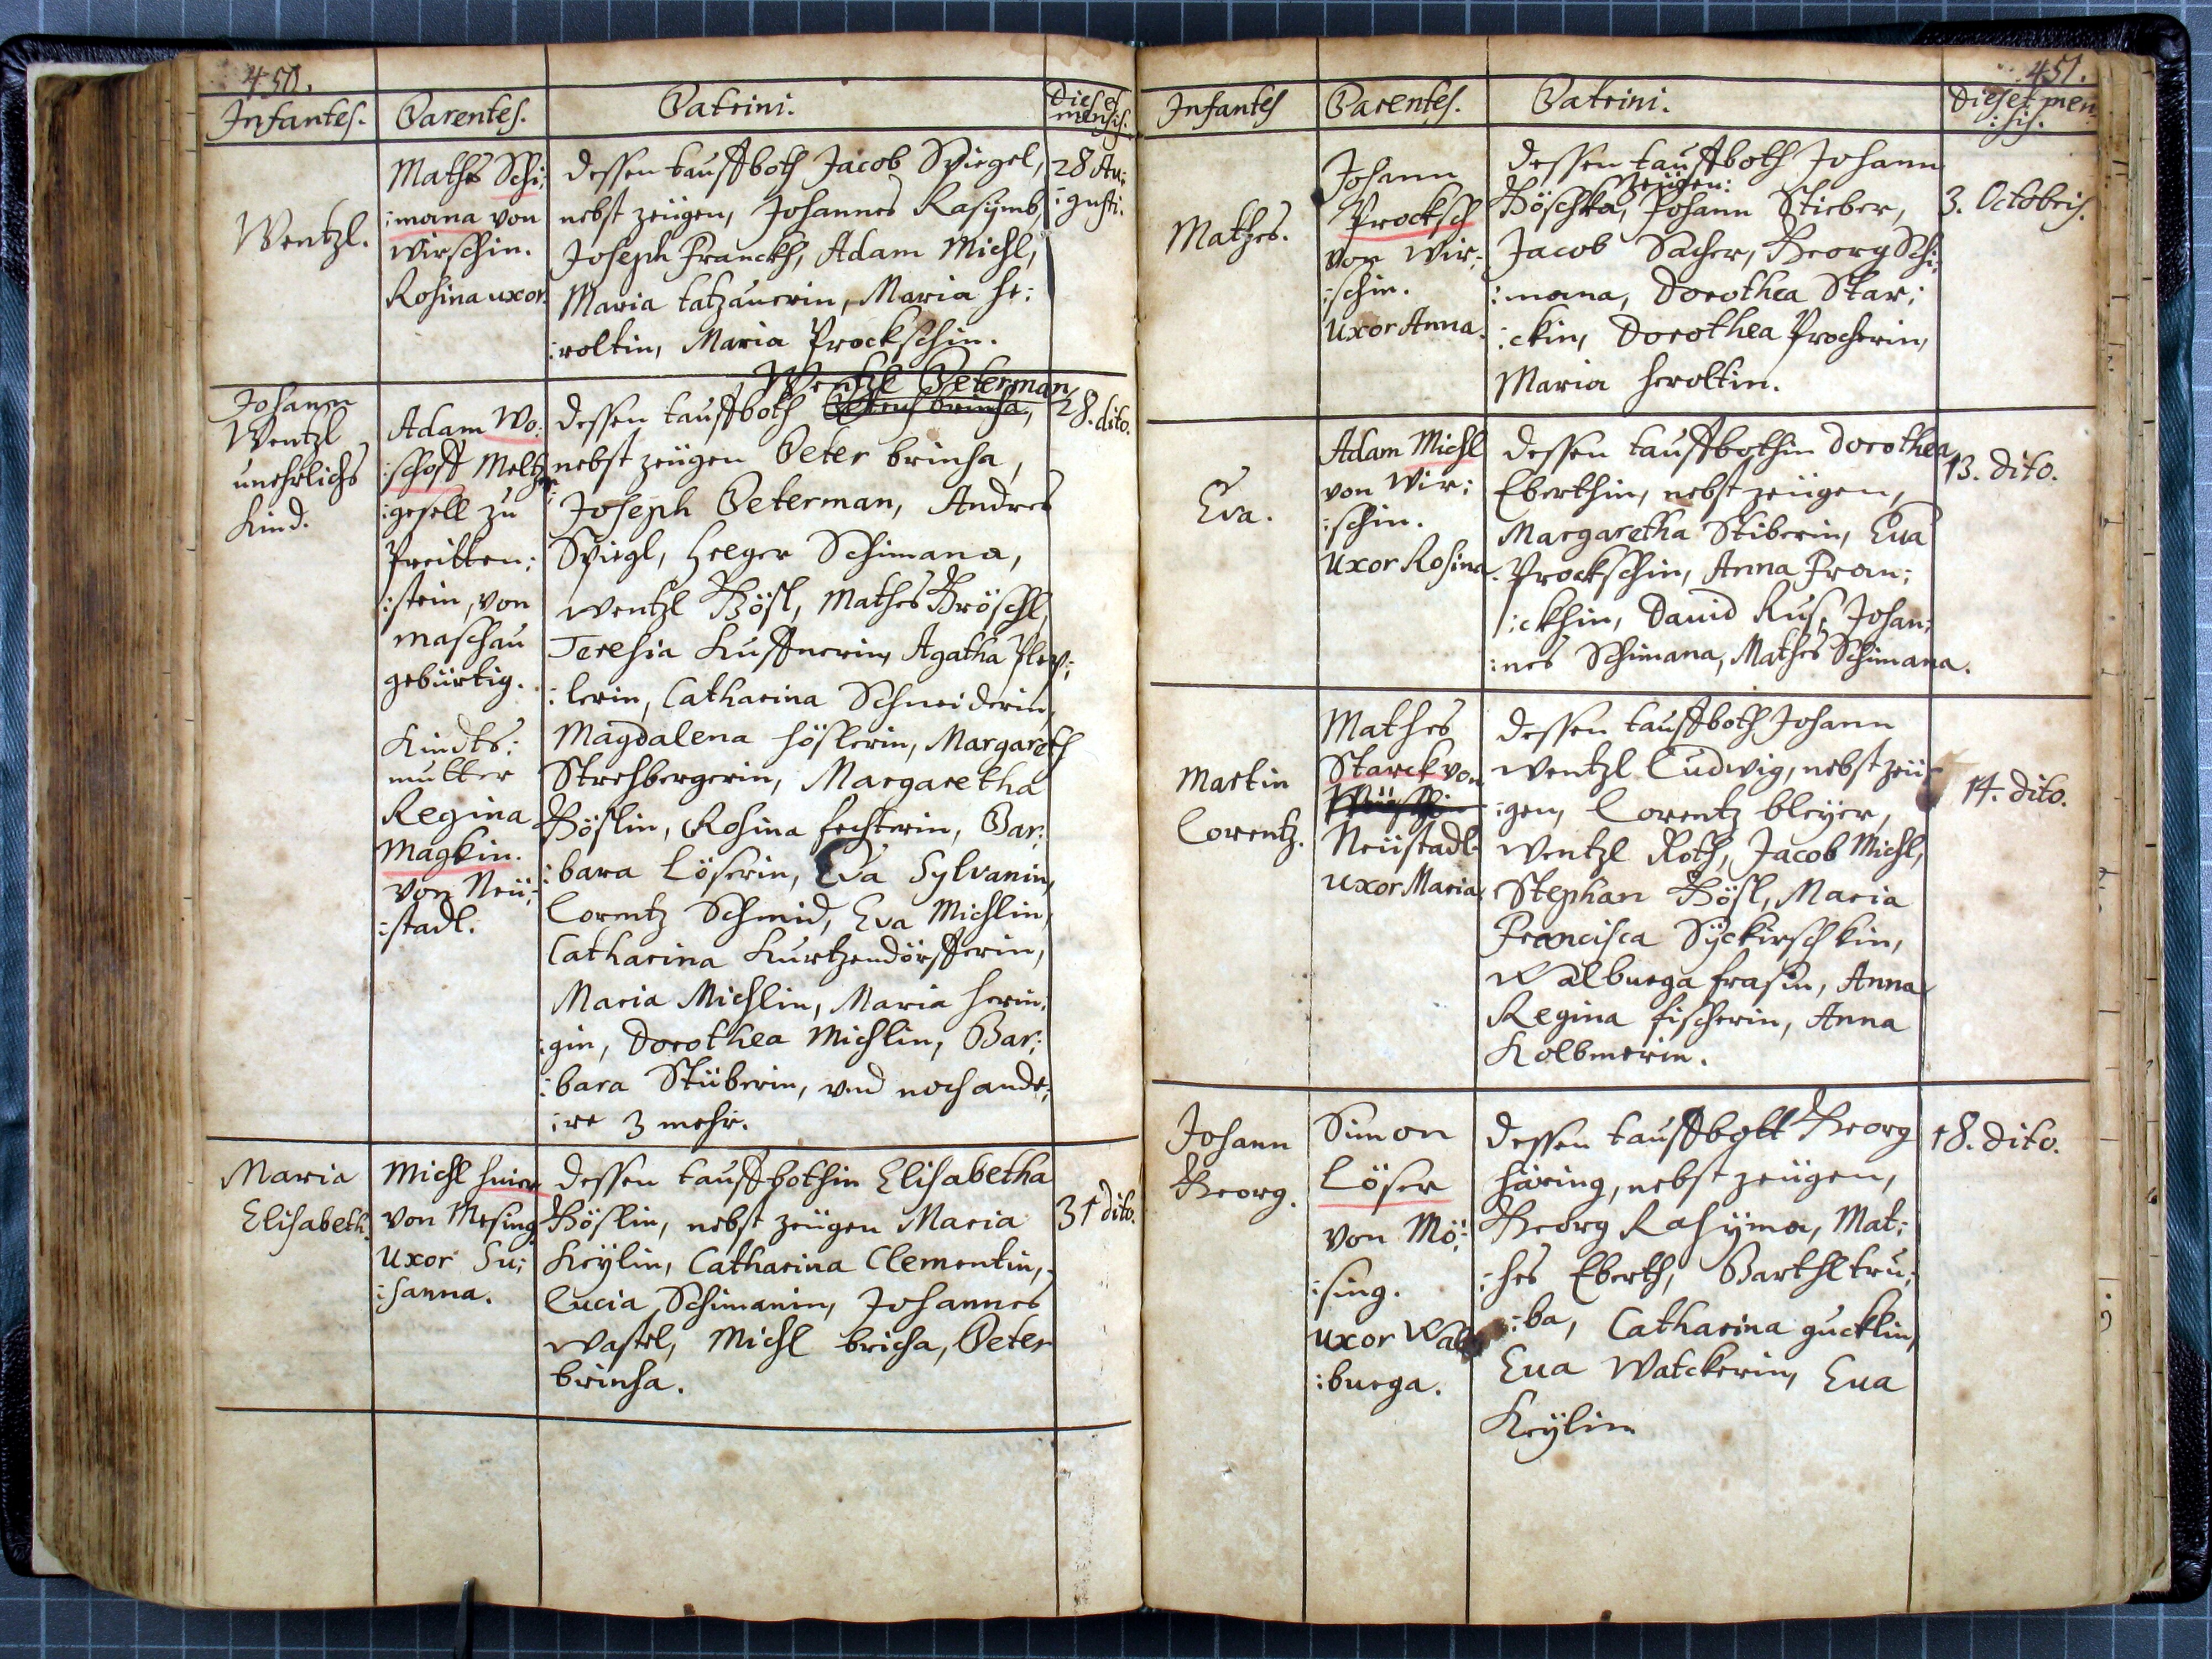 450.
Infantes. Parentes. Patrini. Dies et mensis.
Wentzl.
Mathes Schi:
:mana von
Wirschin.
Rosina uxor.
dessen tauffboth Jacob Spiegel,
nebst zeügen, Johannes Rasÿmb,
Joseph Franckh, Adam Michl,
Maria tatzauerin, Maria he:
:roltin, Maria Prockschin.
28 Au:
:gusti.
Johann
Wentzl
unehrlichs
Kind.
Adam Wo:
:schoff Meltzer
:gesell zu
Preitten:
:stein, von
maschau
gebürtig.
Kindts:
mutter
Regina
Magkin.
von Neü:
:stadl.
Wentzl Peterman
dessen tauffboth
nebst zeügen Peter brinha,
Joseph Peterman, Andres
Spiegl, Heeger Schimana,
wentzl Bösl, Mathes Gröschl,
Teresia Kuffnerin, Agatha
:lerin, Catharina Schneiderin,
Magdalena Höslerin, Margareth
Strehbergerin, Margaretha
Böslin, Rosina fechterin, Bar:
:bara Löserin, Eva Sylvanin,
Lorentz Schmid, Eva Michlin,
Catharina Kurtzendörfferin,
Maria Michlin, Maria herin:
:gin, Dorothea Michlin, Bar:
:bara Stüberin, und noch ande:
:re 3 mehr.
28. dito.
Maria
Elisabeth.
Michl
von Mesing
uxor Su:
:sanna.
dessen tauffbothin Elisabetha
Böslin, nebst zeügen Maria
Keÿlin, Catharina Clementin,
Lucia Schimanin, Johannes
Wastl, Michl bricha, Peter
brinha.
31 dito.
451.
Infantes Parentes. Patrini. Dies et men:
:sis.
Mathes.
Johann
Procksch
von Wir:
:schin.
uxor Anna.
dessen tauffboth Johann
zeügen:
Böschka, Johann Stieber,
Jacob Sacher, Georg Schi:
:mana, Dorothea Star:
:ckin, Dorothea Procherin,
Maria heroltin.
3. Octobris.
Eva.
Adam Michl
von Wir:
:schin.
uxor Rosina.
dessen tauffbothin Dorothea
Eberthin, nebst zeügen,
Margaretha Stiberin, Eua
Prockschin, Anna Fran:
:ckhin, Dauid Rus, Johan:
:nes Schimana, Mathes Schimana.
13. dito.
Martin
Lorentz.
Mathes
Starck von
Neüstadl.
uxor Maria.
dessen tauffboth Johann
wentzl Ludwig, nebst zeü:
:gen, Lorentz bleÿer,
Wentzl Roth, Jacob Michl,
Stephan Bösl, Maria
Francisca Sÿckirschkin,
Walburga frasin, Anna
Regina fischerin, Anna
Kolbmerin.
14. dito.
Johann
Georg.
Simon
Löser
von Mö:
:sing.
uxor Wal:
:burga.
dessen tauffbott Georg
häring, nebst zeügen,
Georg Rasÿma, Mat:
:hes Eberth, Barthl tru:
:ba, Catharina gucklin,
Eua Watckerin, Eua
Keÿlin
18. dito.